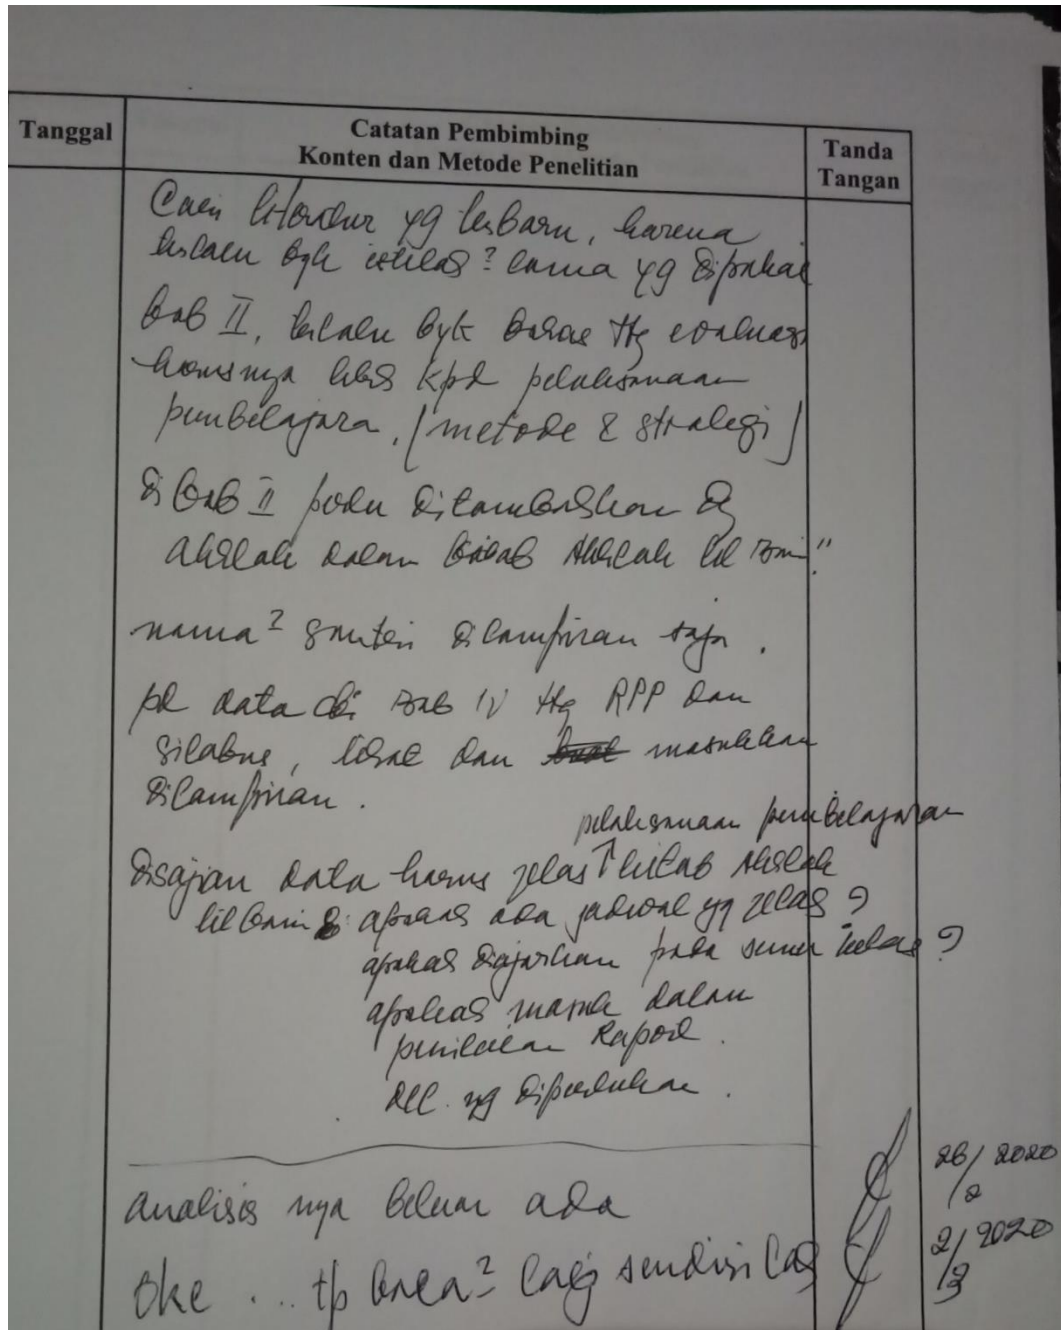 Tanggal
Catatan Pembimbing
Konten dan Metode Penelitian
Tanda
Tangan
Cari literatur yg terbaru, karena
terlalu byk istilah² lama yg dipakai
bab II, terlalu byk bahas ttg evaluasi
harusnya lebih kpd pelaksanaan
pembelajara. (metode & strategi)
di bab II perlu ditambahkan dg
akhlak dalam kitab Akhlak lil Banin"
nama² santri dilampiran saja.
pd data di Bab IV ttg RPP dan
silabus, lihat dan masukkan
dilampiran.
pelaksanaan pembelajaran
disajian data harus jelas ↑ kitab Akhlak
lil banin : apakah ada jadwal yg jelas ?
apakah diajarkan pada semua kelas ?
apakah masuk dalam
penilaian Rapor.
dll. yg diperlukan.
analisis nya belum ada
26/2020
/2
Oke ... tp baca² lagi sendiri lah
2/2020
/3